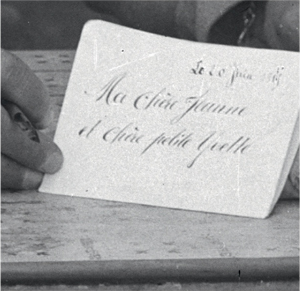 Le 20 Juin
Ma chère Jeanne
et chère petite Yvette